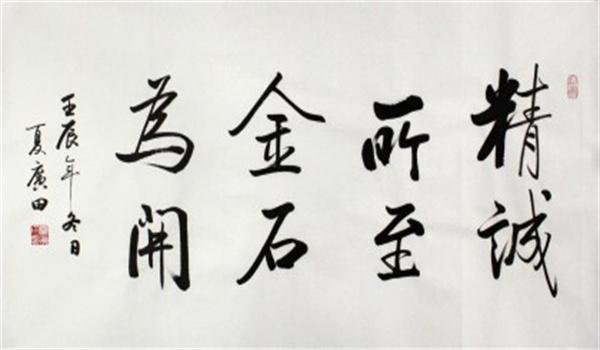 精誠
所至
金石
為開
壬辰年冬日
夏廣田